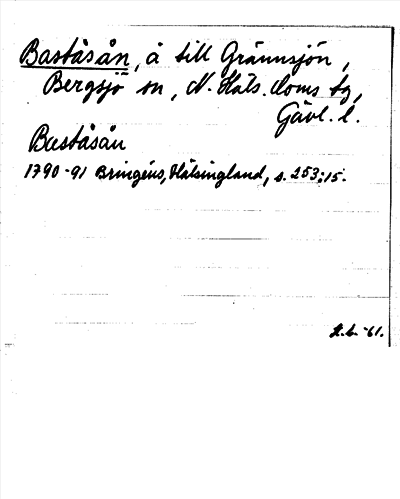 Baståsån, å till Grännsjön,
Bergsjö sn, N. Häls. doms tg,
Gävl. l.
Baståsån
1790-91 Bringéus, Hälsingland, s. 253; 15.
-61.